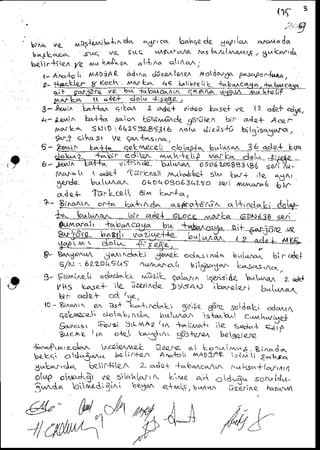 175 3
bina ve müştemilatında ayrıca bahçede yapılan aramada
başkaca suç ve suç unsuruna rastlanılmamış, yukarıda
belirtilen ve muhafaza altına alınan;
1- Anatoli MADJAR adına düzenlenen Moldovya pasaportuna,
2- Heckler & Koch marka 45 kalibrelik tabancaya, tabancaya
ait şarjöre ve bu tabancanın çapına uygun muhtelif
marka 11 adet dolu fişeğe,
3- Zemin kattan çıkan 2 adet video kaset ve 12 adet
4- Zemin katta salon bölümünde görülen bir adet Acer
marka SNID: 64259285316 nolu dizüstü bilgisayara,
şarj cihazı ve çantasına,
5- Zemin katta çekmeceli dolapta bulunan 36 adet
dolu tabir edilen muhtelif marka dolu fişeğe
6- Zemin katta vitrinde bulunan 05062058318 seri nu-
maralı 1 adet Türkcell muhabbet sim kart ile aynı
yerde bulunan 0404090634250 seri numaralı bir
adet Türkcell sim karta,
7- Binanın orta katında aspiratörün altındaki dolap-
ta bulunan bir adet GLOCK marka GDN638 seri
numaralı tabancaya bu tabancaya ait şarjöre ve
şarjöre basılı vaziyette bulunan 12 adet MKE
yapımı dolu fişeğe,
8- Banyonun yanındaki yemek odasında bulunan bir adet
S/N: 62204545 numaralı bilgisayar kasasına,
9- Şömineli odadaki müzik çaların içerisinde bulunan 2 adet
VHS kaset ile üzerinde DYSAN ibareleri bulunan
bir adet cd'ye,
10- Binanın en üst katındaki girişe göre soldaki odanın
çekmeceli dolabında bulunan İstanbul Cumhuriyet
Savcısı YILMAZ'ın talimatı ile Sedat Edip
BUCAK'ın otel kaydını gösteren belgelere
tarafımızdan incelenmek üzere el konulmuş, Binada
bekçi olduğunu belirten Anatoli MADJAR isimli şahısa
yukarıda belirtilen 2 adet tabancanın ruhsatlarının
olup olmadığı ve silahların kime ait olduğu soruldu-
ğunda bilmediğini beyan etmiş, bunun üzerine